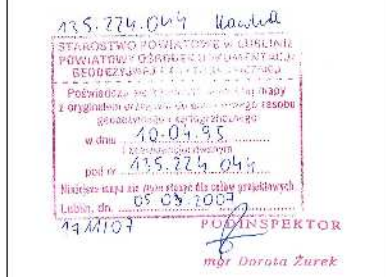 135.224.044
STAROSTWO POWIATOWE w LUBINIE
POWIATOWY OŚRODEK DOKUMENTACJI
GEODEZYJNEJ I KARTOGRAFICZNEJ
Poświadcza się mapy
z oryginałem zasobu
geodezyjnego i kartograficznego
w dniu 10.04.95
i zaewidencjonowanym
pod nr 135.224.044
Niniejsza mapa nie może służyć dla celów projektowych
Lubin, dn. 05.03.2007
1711/07
PODINSPEKTOR
mgr Dorota Żurek